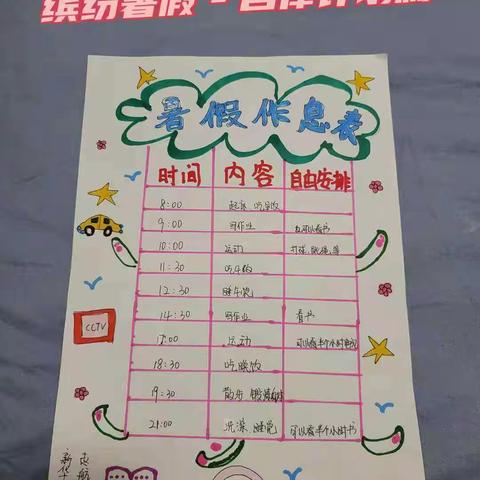 缤纷暑假·自律计划
暑假作息表
时间 内容 自由安排
8:00 起床 吃早饭
9:00 写作业 也可以看书
10:00 运动 打球、跳绳等
11:30 吃午饭
12:30 睡午觉
14:30 写作业 看书
17:00 运动 可以看半个小时电视
18:30 吃晚饭
19:30 散步 锻炼身体
21:00 洗澡、睡觉 可以看半个小时书
CCTV